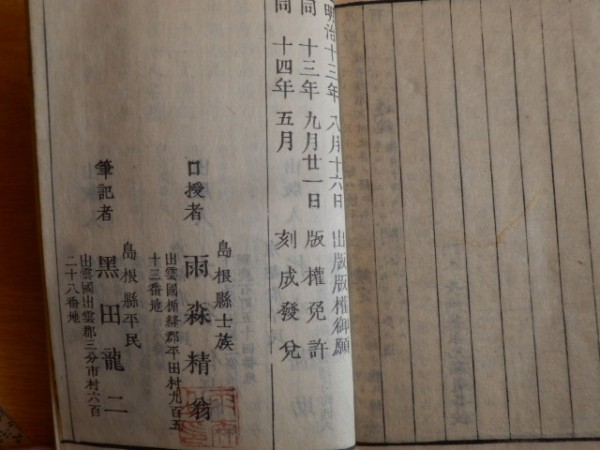 明治十三年 八月十六日 出版版權御願
同 十三年 九月廿一日 版權免許
同 十四年 五月 刻成發兌
島根縣士族
口授者 雨森精翁
出雲國楯縫郡平田村九百五
十三番地
島根縣平民
筆記者 黑田龍二
出雲國出雲郡三分市村六百
二十八番地